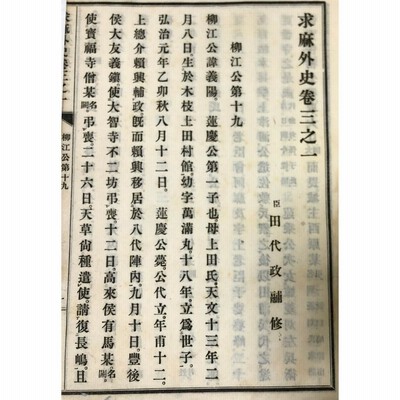 求麻外史卷三之一
臣 田代政鬴修
柳江公第十九
柳江公諱義陽。蓮慶公第一子也母上田氏。天文十三年二
月八日。生於木枝上田村館。幼字萬滿丸。十八年。立爲世子。
弘治元年乙卯秋八月十二日。蓮慶公薨。公代立。年甫十二。
上總介賴興輔政。既而賴興移居於八代陣内。九月十日。豐後
侯大友義鎭。使大智寺不二坊弔喪。十二日。高來侯有馬某。名闕
使寶福寺僧某。名闕弔喪。二十六日。天草尙種遣使。請復長嶋。且
求麻外史卷三之一
柳江公第十九
一